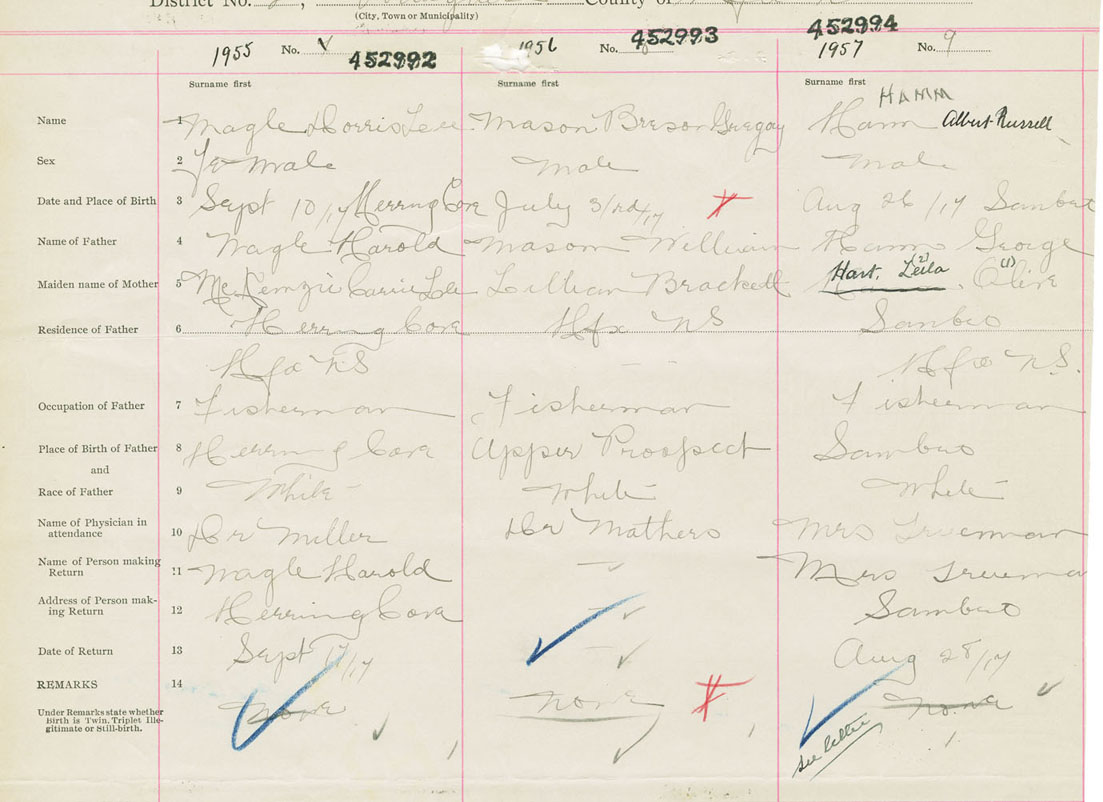 District No. 2, County of
(City, Town or Municipality)
1955 No. 452992 1956 No. 452993 1957 No. 9 452994
Surname first Surname first Surname first
HAMM
Name 1 Nagle Dorris Lee Mason Gregory Hamm Albert Russell
Sex 2 Fe male Male Male
Date and Place of Birth 3 Sept 10/17 Herring Cove July 3/rd/17 Aug 26/17 Sambro
Name of Father 4 Nagle Harold Mason William Hamm George
Maiden name of Mother 5 McKenzie Carrie Lee Lillian Brackett Hart, Leila (2) Olive (1)
Residence of Father 6 Herring Cove Hfx NS Sambro
Hfx NS Hfx N.S.
Occupation of Father 7 Fisherman Fisherman Fisherman
Place of Birth of Father 8 Herring Cove Upper Prospect Sambro
and
Race of Father 9 White White White
Name of Physician in
attendance 10 Dr Miller Dr Mathers Mrs Trueman
Name of Person making
Return 11 Nagle Harold Mrs
Address of Person mak-
ing Return 12 Herring Cove Sambro
Date of Return 13 Sept 17/17 Aug 28/17
REMARKS 14 None None None
Under Remarks state whether
Birth is Twin, Triplet Ille-
gitimate or Still-birth.
1 1
see letter